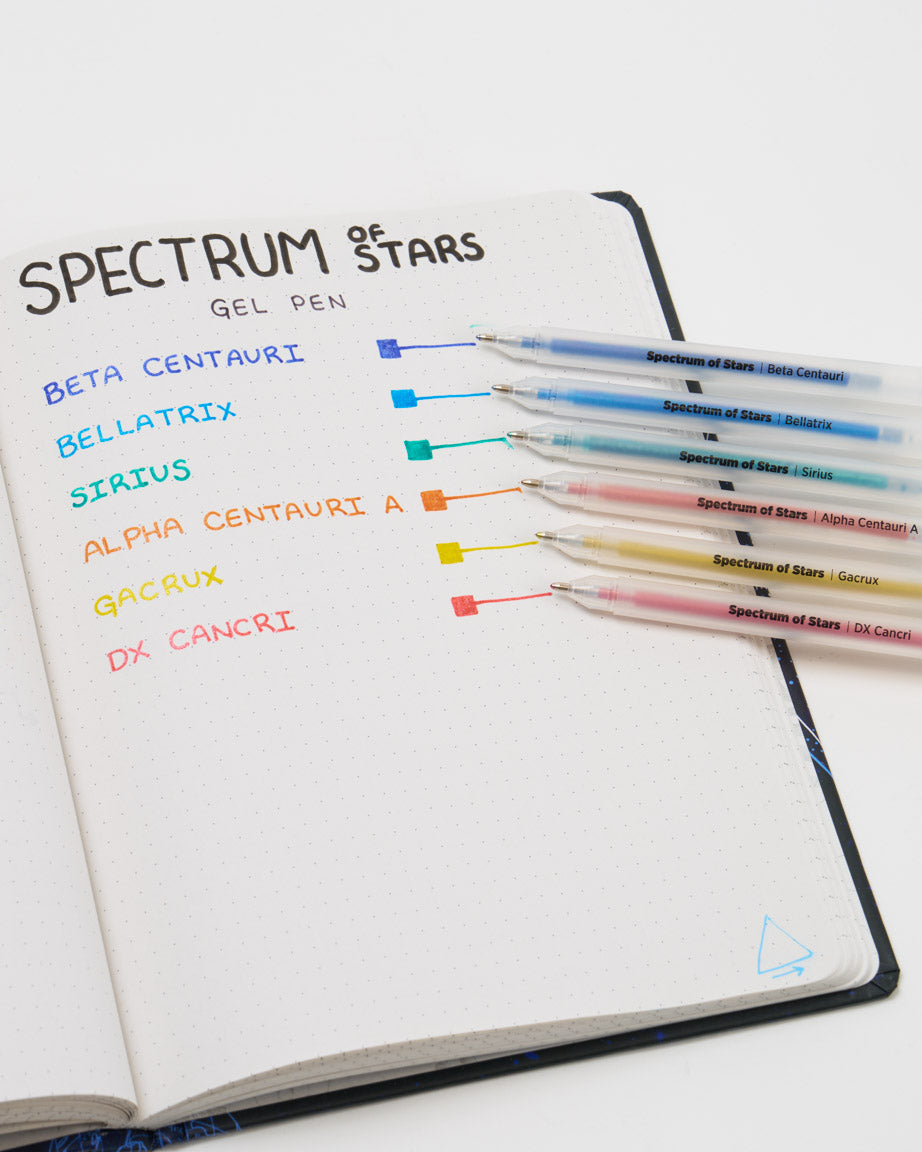 SPECTRUM OF STARS
GEL PEN
BETA CENTAURI
BELLATRIX
SIRIUS
ALPHA CENTAURI A
GACRUX
DX CANCRI
Spectrum of Stars | Beta Centauri
Spectrum of Stars | Bellatrix
Spectrum of Stars | Sirius
Spectrum of Stars | Alpha Centauri A
Spectrum of Stars | Gacrux
Spectrum of Stars | DX Cancri